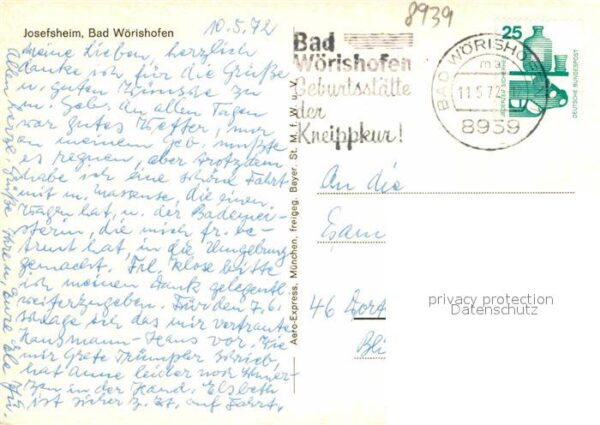 Josefsheim, Bad Wörishofen
10.5.72
meine Lieben, herzlich
danke ich für die Grüße
u. guten Wünsche zu
m. Geb. An allen Tagen
war gutes Wetter, nur
an meinem Geb. mußte
es regnen, aber trotzdem
habe ich eine schöne Fahrt
mit m. Masseuse, die einen
Wagen hat, u. der Bademei-
sterin, die mich fr. be-
treut hat, in die Umgebung
gemacht. Frl. Klose bitte
ich meinen Dank gelegentl.
weiterzugeben. Für den 7.6.
schlage ich das mir vertraute
Hausmann-Haus vor. Wie
mir Grete Trümpler schrieb,
hat Anne leider noch Schmer-
zen in der Hand. Elsbeth
ist sicher z. Zt. auf Fahrt.
Allen herzl. Grüße Ihre u. Eure
Aero-Express, München, freigeg. Bayer. St. M. f. W. u. V.
8939
Bad
Wörishofen
Geburtsstätte
der
Kneippkur!
BAD WÖRISHOF
11.5.72
8939
25
DEUTSCHE BUNDESPOST
An die
Fam
46 Dort
Bli
privacy protection
Datenschutz